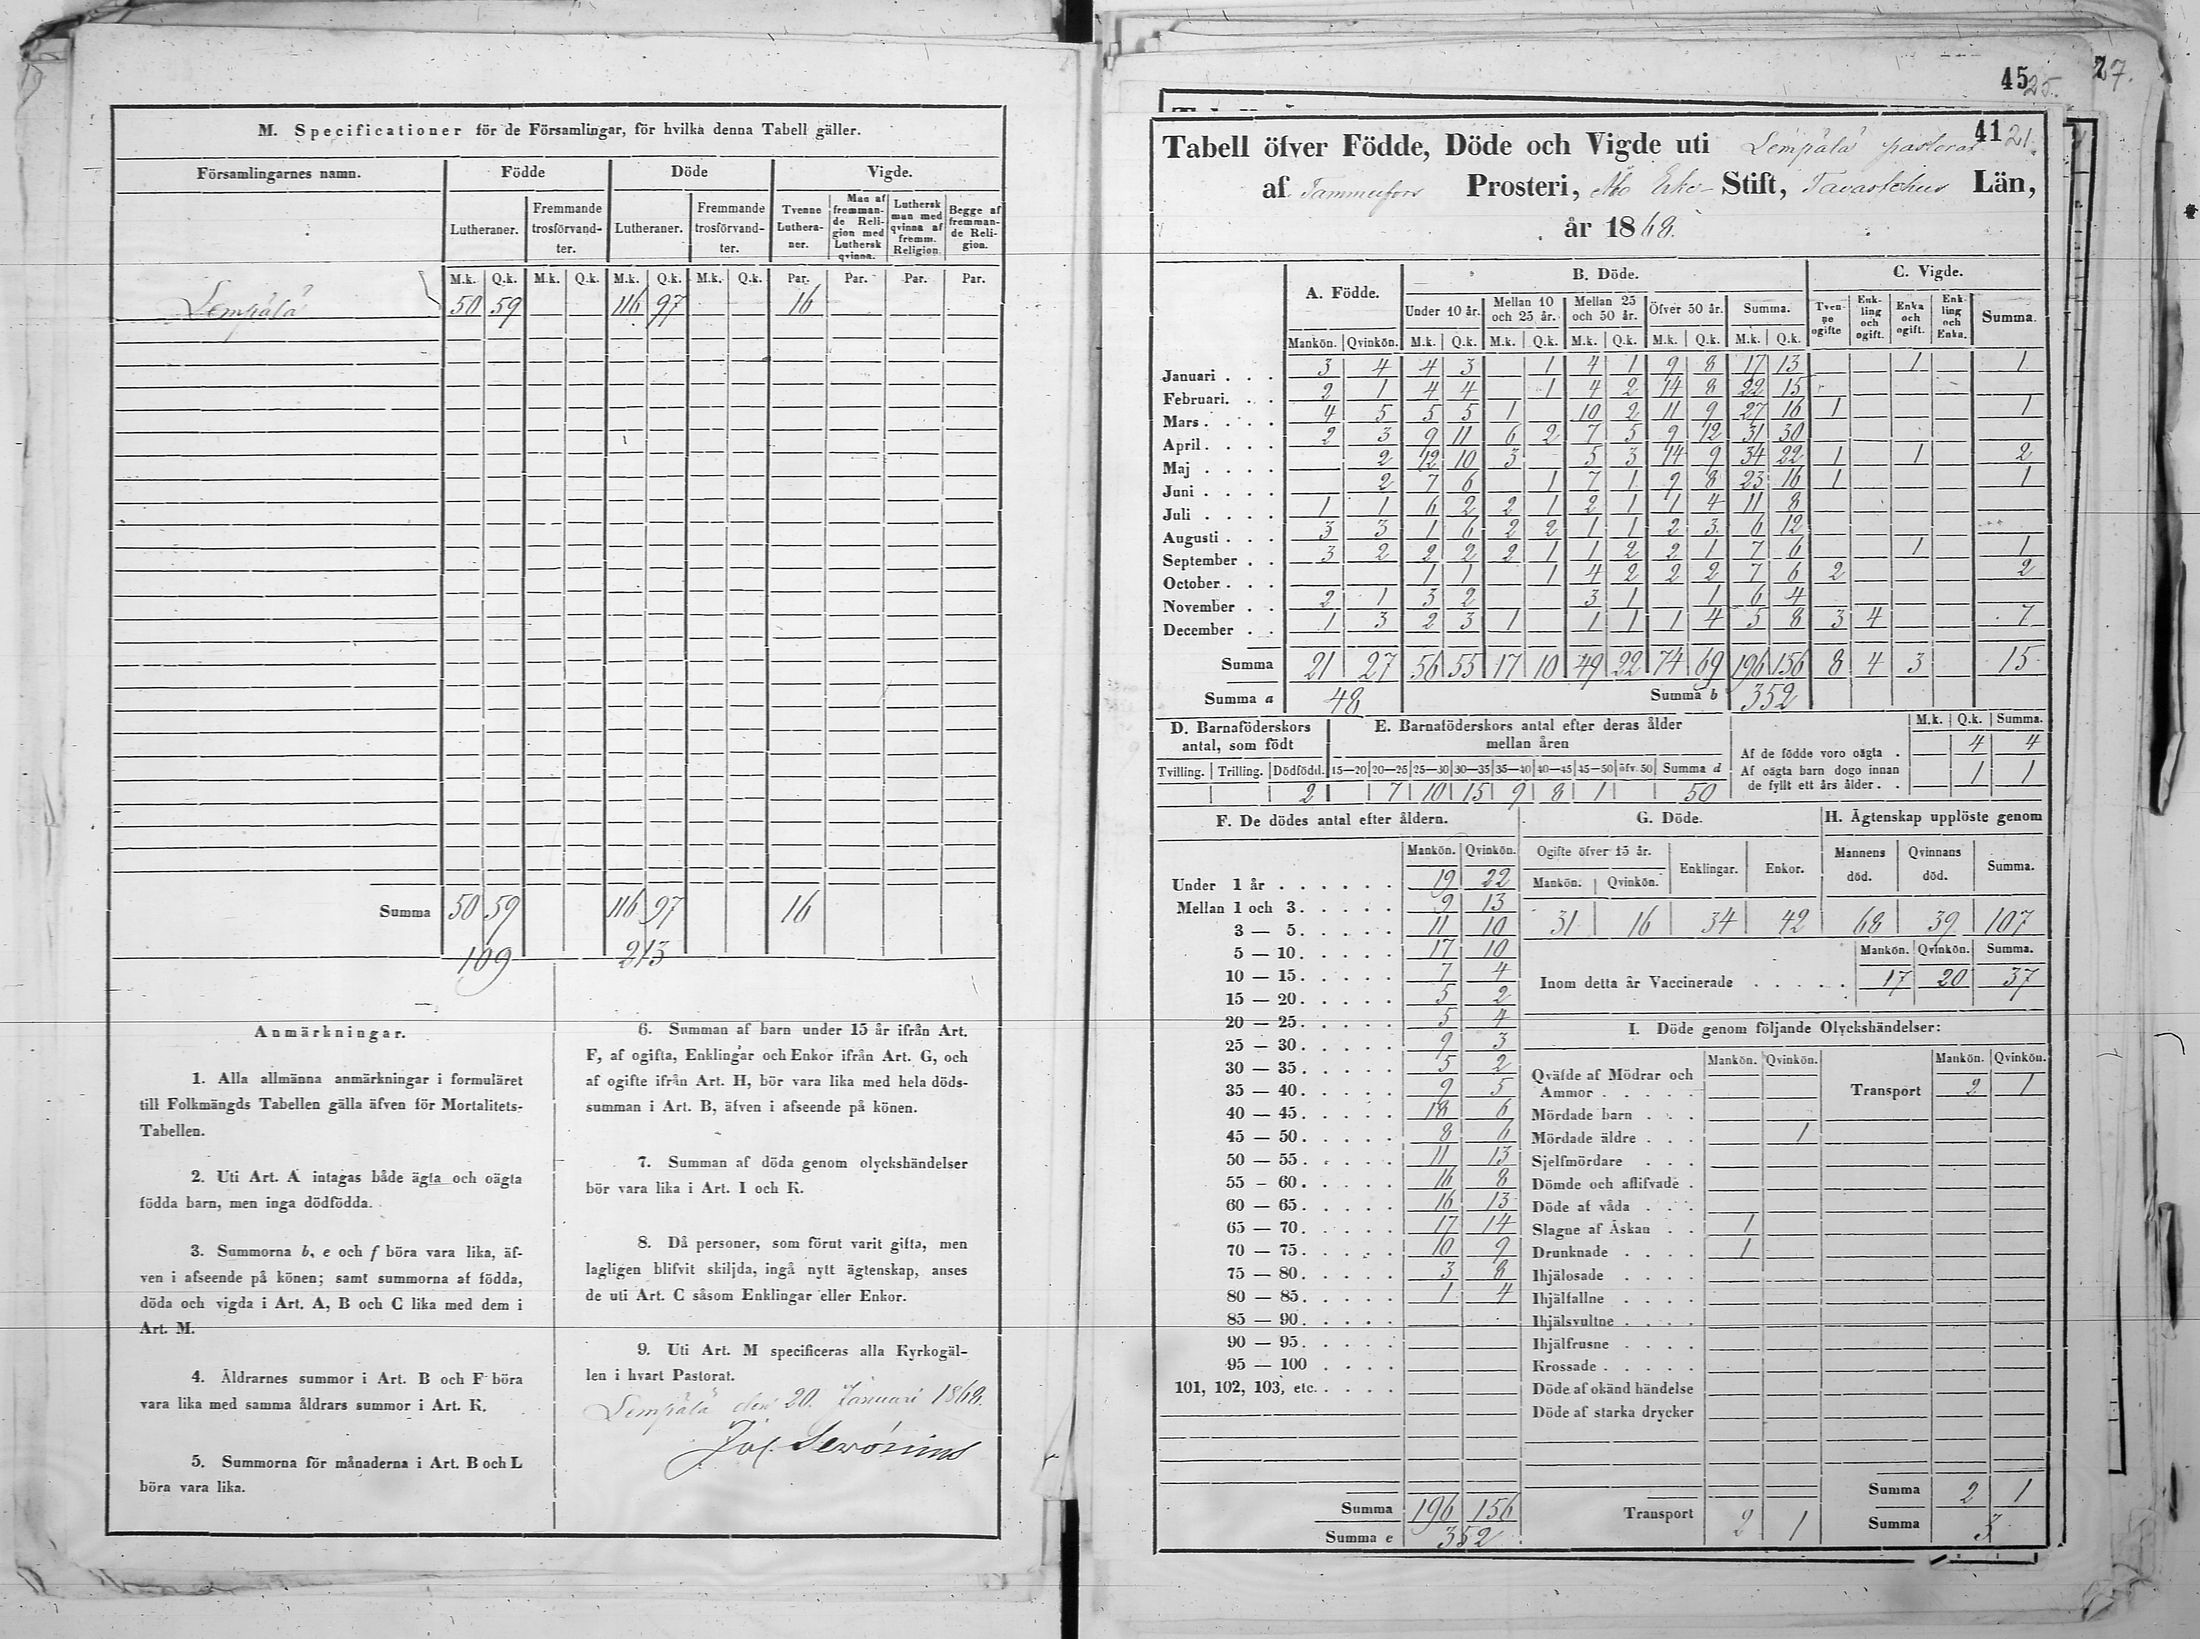 M. Specificationer för de Församlingar, för hvilka denna Tabell gäller.
Församlingarnes namn. | Födde | Döde | Vigde.
Lutheraner. | Fremmande trosförvandter. | Lutheraner. | Fremmande trosförvandter. | Tvenne Lutheraner. | Man af fremmande Religion med Luthersk qvinna. | Luthersk man med qvinna af fremm. Religion. | Begge af fremmande Religion.
M.k. | Q.k. | M.k. | Q.k. | M.k. | Q.k. | M.k. | Q.k. | Par. | Par. | Par. | Par.
Lempälä | 50 | 59 | | | 116 | 97 | | | 16
Summa | 50 | 59 | | | 116 | 97 | | | 16
109 | 213
Anmärkningar.
1. Alla allmänna anmärkningar i formuläret
till Folkmängds Tabellen gälla äfven för Mortalitets-
Tabellen.
2. Uti Art. A intagas både ägta och oägta
födda barn, men inga dödfödda.
3. Summorna b, e och f böra vara lika, äf-
ven i afseende på könen; samt summorna af födda,
döda och vigda i Art. A, B och C lika med dem i
Art. M.
4. Åldrarnes summor i Art. B och F böra
vara lika med samma åldrars summor i Art. K.
5. Summorna för månaderna i Art. B och L
böra vara lika.
6. Summan af barn under 15 år ifrån Art.
F, af ogifta, Enklingar och Enkor ifrån Art. G, och
af ogifte ifrån Art. H, bör vara lika med hela döds-
summan i Art. B, äfven i afseende på könen.
7. Summan af döda genom olyckshändelser
bör vara lika i Art. I och K.
8. Då personer, som förut varit gifta, men
lagligen blifvit skiljda, ingå nytt ägtenskap, anses
de uti Art. C såsom Enklingar eller Enkor.
9. Uti Art. M specificeras alla Kyrkogäl-
len i hvart Pastorat.
Lempälä den 20. Januari 1868.
45 25. 27.
41 21.
Tabell öfver Födde, Döde och Vigde uti Lempälä pastorat
af Tammerfors Prosteri, Åbo Erke-Stift, Tavastehus Län,
år 1868.
A. Födde. | B. Döde. | C. Vigde.
Under 10 år. | Mellan 10 och 25 år. | Mellan 25 och 50 år. | Öfver 50 år. | Summa. | Tvenne ogifte | Enkling och ogift. | Enka och ogift. | Enkling och Enka. | Summa.
Mankön. | Qvinkön. | M.k. | Q.k. | M.k. | Q.k. | M.k. | Q.k. | M.k. | Q.k. | M.k. | Q.k.
Januari . . . | 3 | 4 | 4 | 3 | | 1 | 4 | 1 | 9 | 8 | 17 | 13 | | | 1 | | 1
Februari. . . | 2 | 1 | 4 | 4 | | 1 | 4 | 2 | 14 | 8 | 22 | 15
Mars . . . . | 4 | 5 | 5 | 5 | 1 | | 10 | 2 | 11 | 9 | 27 | 16 | 1 | | | | 1
April . . . . | 2 | 3 | 9 | 11 | 6 | 2 | 7 | 5 | 9 | 12 | 31 | 30
Maj . . . . | | 2 | 12 | 10 | 3 | | 5 | 3 | 14 | 9 | 34 | 22 | 1 | | 1 | | 2
Juni . . . . | | 2 | 7 | 6 | | 1 | 7 | 1 | 9 | 8 | 23 | 16 | 1 | | | | 1
Juli . . . . | 1 | 1 | 6 | 2 | 2 | 1 | 2 | 1 | 1 | 4 | 11 | 8
Augusti . . . | 3 | 3 | 1 | 6 | 2 | 2 | 1 | 1 | 2 | 3 | 6 | 12
September . . | 3 | 2 | 2 | 2 | 2 | 1 | 1 | 2 | 2 | 1 | 7 | 6 | | | 1 | | 1
October . . . | | | 1 | 1 | | 1 | 4 | 2 | 2 | 2 | 7 | 6 | 2 | | | | 2
November . . | 2 | 1 | 3 | 2 | | | 3 | 1 | | 1 | 6 | 4
December . . | 1 | 3 | 2 | 3 | 1 | | 1 | 1 | 1 | 4 | 5 | 8 | 3 | 4 | | | 7
Summa | 21 | 27 | 56 | 55 | 17 | 10 | 49 | 22 | 74 | 69 | 196 | 156 | 8 | 4 | 3 | | 15
Summa a | 48 | Summa b | 352
D. Barnaföderskors antal, som födt
Tvilling. | Trilling. | Dödfödd.
2
E. Barnaföderskors antal efter deras ålder mellan åren
15—20 | 20—25 | 25—30 | 30—35 | 35—40 | 40—45 | 45—50 | öfv. 50 | Summa d
| 7 | 10 | 15 | 9 | 8 | 1 | | 50
M.k. | Q.k. | Summa.
Af de födde voro oägta . | | 4 | 4
Af oägta barn dogo innan
de fyllt ett års ålder . . | | 1 | 1
F. De dödes antal efter åldern.
Mankön. | Qvinkön.
Under 1 år | 19 | 22
Mellan 1 och 3. | 9 | 13
3 — 5. | 11 | 10
5 — 10. | 17 | 10
10 — 15. | 7 | 4
15 — 20. | 5 | 2
20 — 25. | 5 | 4
25 — 30. | 9 | 3
30 — 35. | 5 | 2
35 — 40. | 9 | 5
40 — 45. | 18 | 6
45 — 50. | 8 | 6
50 — 55. | 11 | 13
55 — 60. | 16 | 8
60 — 65. | 16 | 13
65 — 70. | 17 | 14
70 — 75. | 10 | 9
75 — 80. | 3 | 8
80 — 85. | 1 | 4
85 — 90.
90 — 95.
95 — 100
101, 102, 103, etc.
Summa | 196 | 156
Summa e | 352
G. Döde.
Ogifte öfver 15 år. | Enklingar. | Enkor.
Mankön. | Qvinkön.
31 | 16 | 34 | 42
H. Ägtenskap upplöste genom
Mannens död. | Qvinnans död. | Summa.
68 | 39 | 107
Mankön. | Qvinkön. | Summa.
Inom detta år Vaccinerade . . . . . | 17 | 20 | 37
I. Döde genom följande Olyckshändelser:
Mankön. | Qvinkön. | Mankön. | Qvinkön.
Qväfde af Mödrar och
Ammor . . . . . | | | Transport | 2 | 1
Mördade barn . . .
Mördade äldre . . . | | 1
Sjelfmördare . . .
Dömde och aflifvade .
Döde af våda . . .
Slagne af Åskan . . | 1
Drunknade . . . . | 1
Ihjälosade . . . .
Ihjälfallne . . . .
Ihjälsvultne . . . .
Ihjälfrusne . . . .
Krossade . . . . .
Döde af okänd händelse
Döde af starka drycker
Summa | 2 | 1
Transport | 2 | 1 | Summa | 3